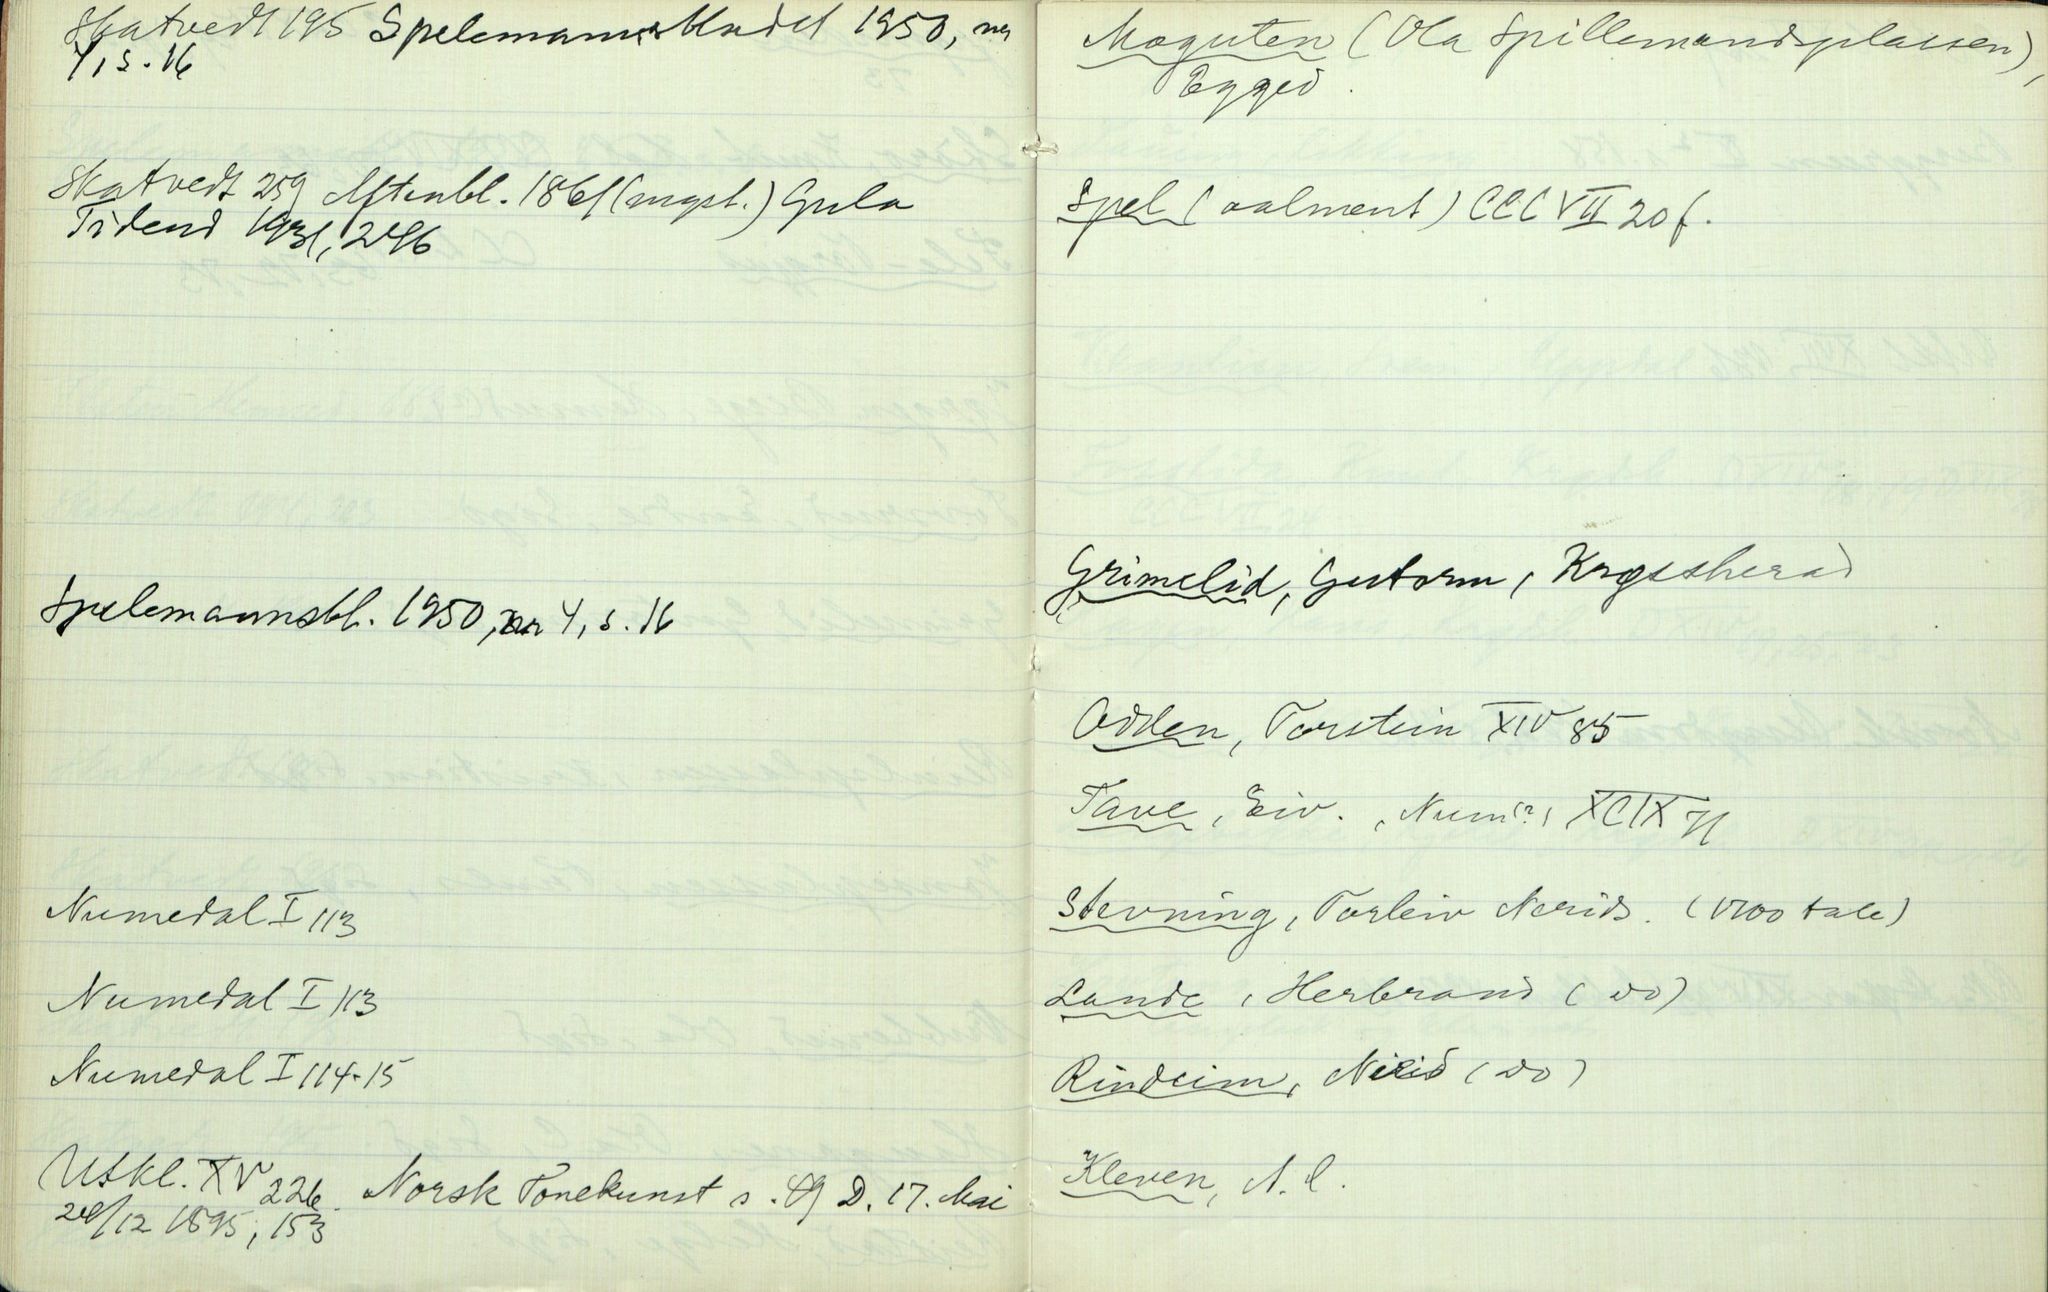 Skatvedt 195 Spelemannsbladet 1950, nr
4, s. 16
Skatvedt 259 Aftenbl. 1861 (mgst.) Gula
Tidend 1931, 246
Spelemannsbl. 1950, nr 4, s. 16
Numedal I 113
Numedal I 113
Numedal I 114-15
Utskl. XV 226 Norsk Tonekunst s. 49 D. 17. Mai
24/12 1895, 153
Moguten (Ola Spillemandsplassen),
Egged.
Spel (aalment) CCCVII 20 f.
Grimelid, Gutorm, Krøssherad
Odden, Torstein XIV 85
Tave, Eiv. , Num(?), XCIX 71
Stevning, Torleiv Nerids. (1700 tale)
Lande, Herbrand (do)
Rindeim, Nirid (do)
Kleven, A. O.